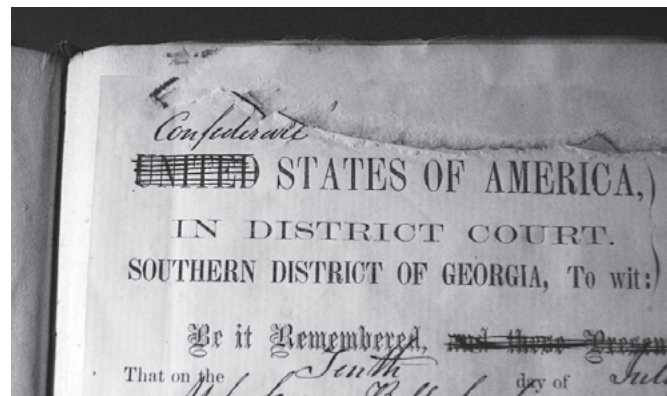 Confederate
UNITED STATES OF AMERICA,
IN DISTRICT COURT.
SOUTHERN DISTRICT OF GEORGIA, To wit:
Be it Remembered, and these Presen
That on the Tenth day of Jul